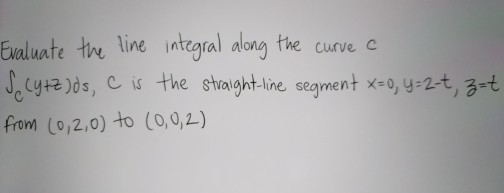 Evaluate the line integral along the curve c
∫c(y+z)ds, C is the straight-line segment x=0, y=2-t, z=t
from (0,2,0) to (0,0,2)